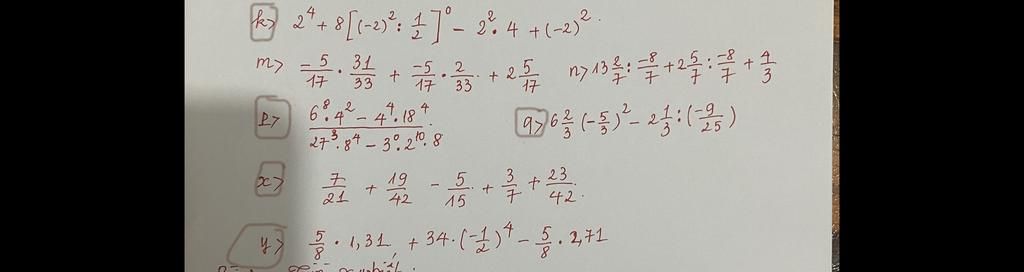 k> 2^4 + 8[(-2)^2 : 1/2]^0 - 2^2 . 4 + (-2)^2.
m> -5/17 . 31/33 + -5/17 . 2/33 + 2 5/17 n> 13 2/7 : -8/7 + 2 5/7 : -8/7 + 4/3
p> (6^8 . 4^2 - 4^4 . 18^4)/(27^3 . 8^4 - 3^0 . 2^10 . 8) q> 6 2/3 (-5/3)^2 - 2 1/3 : (-9/25)
x> 7/21 + 19/42 - 5/15 + 3/7 + 23/42.
y> 5/8 . 1,31 + 34 . (-1/2)^4 - 5/8 . 2,71